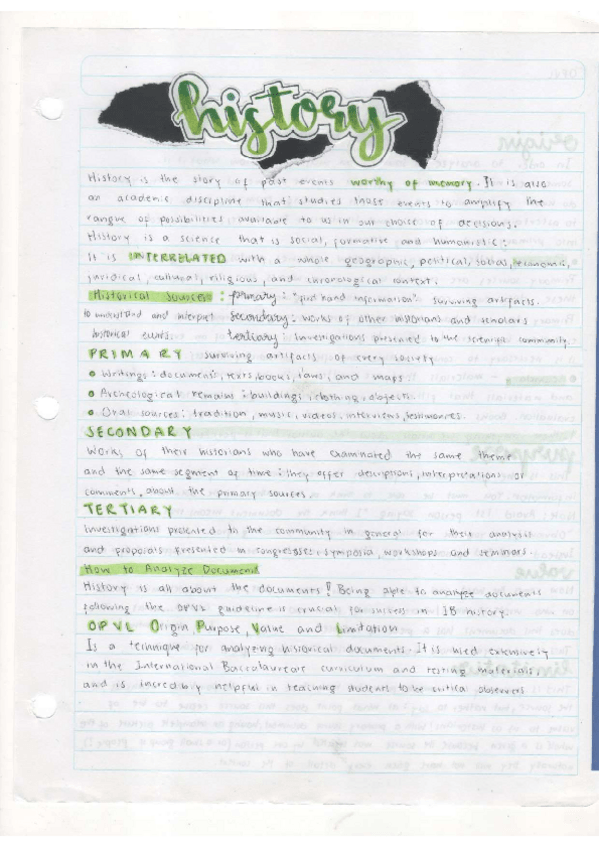 history
History is the story of past events worthy of memory. It is also
an academic discipline that studies those events to amplify the
rangue of possibilities available to us in our choice of decisions.
History is a science that is social, formative and humanistic:
It is INTERRELATED with a whole geographic, political, social, economic,
juridical, cultural, religious, and chronological context.
Historical Sources: primary: "first hand information" surviving artifacts.
to understand and interpret secondary: works of other historians and scholars
historical events. tertiary: Investigations presented to the scientific community.
PRIMARY surviving artifacts of every society
• Writings: documents, texts, books, laws, and maps.
• Archeological remains: buildings, clothing, objects.
• Oral sources: tradition, music, videos, interviews, testimonies.
SECONDARY
Works of their historians who have examinated the same theme
and the same segment of time: they offer descriptions, interpretations or
comments, about the primary sources.
TERTIARY
Investigations presented to the community in general for their analysis
and proposals presented in congresses, symposia, workshops and seminars.
How to Analyze Document
History is all about the documents! Being able to analyze documents
following the OPVL guideline is crucial for in IB history.
OPVL Origin, Purpose, Value and Limitation
Is a technique for analyzing historical documents. It is used extensively
in the International Baccalaureate curriculum and testing materials
and is incredibly helpful in teaching students to be critical observers